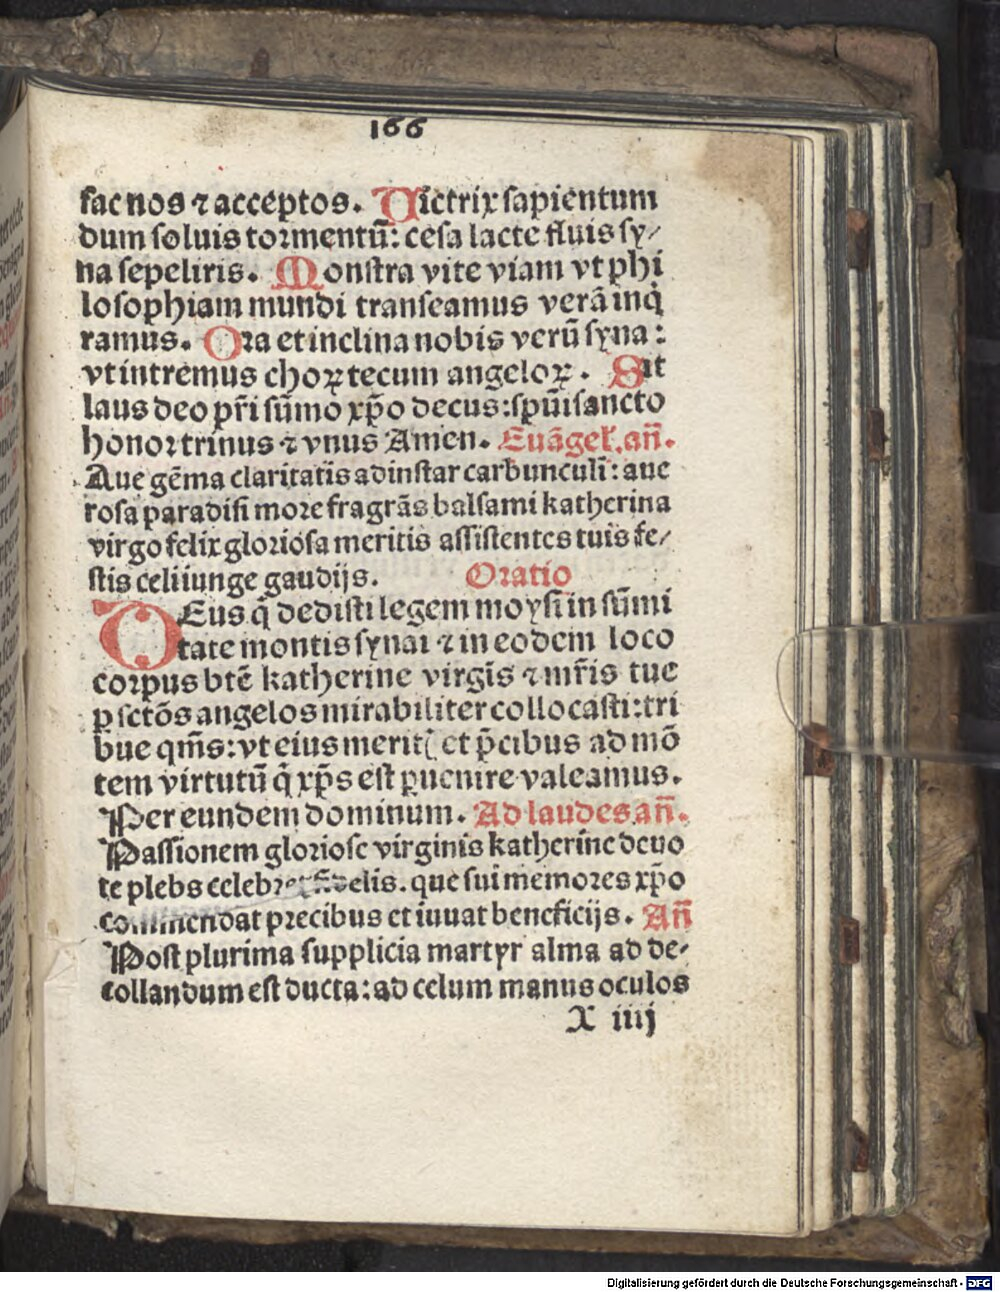 166
fac nos ⁊ acceptos. Victrix sapientum
dum soluis tormentū: cesa lacte fluis sy⸗
na sepeliris. Monstra vite viam vt phi
losophiam mundi transeamus verā inq̄
ramus. Ora et inclina nobis verū syna:
vt intremus choꝝ tecum angeloꝝ. Sit
laus deo pr̄i sūmo xp̄o decus: spūi sancto
honor trinus ⁊ vnus Amen. Euāgel. an̄.
Aue gēma claritatis ad instar carbunculi: aue
rosa paradisi more fragrās balsami katherina
virgo felix gloriosa meritis assistentes tuis fe⸗
stis celi iunge gaudijs. Oratio
DEus q̄ dedisti legem moysi in sūmi
tate montis synai ⁊ in eodem loco
corpus btē katherine virgīs ⁊ mr̄is tue
ꝑ sctōs angelos mirabiliter collocasti: tri
bue qm̄s: vt eius merit(et p̄cibus ad mō
tem virtutū q̄ xp̄s est ꝑuenire valeamus.
Per eundem dominum. Ad laudes an̄.
Passionem gloriose virginis katherine deuo
te plebs celebret fidelis. que sui memores xp̄o
commendat precibus et iuuat beneficijs. An̄
Post plurima supplicia martyr alma ad de⸗
collandum est ducta: ad celum manus oculos
X iiij
Digitalisierung gefördert durch die Deutsche Forschungsgemeinschaft - DFG